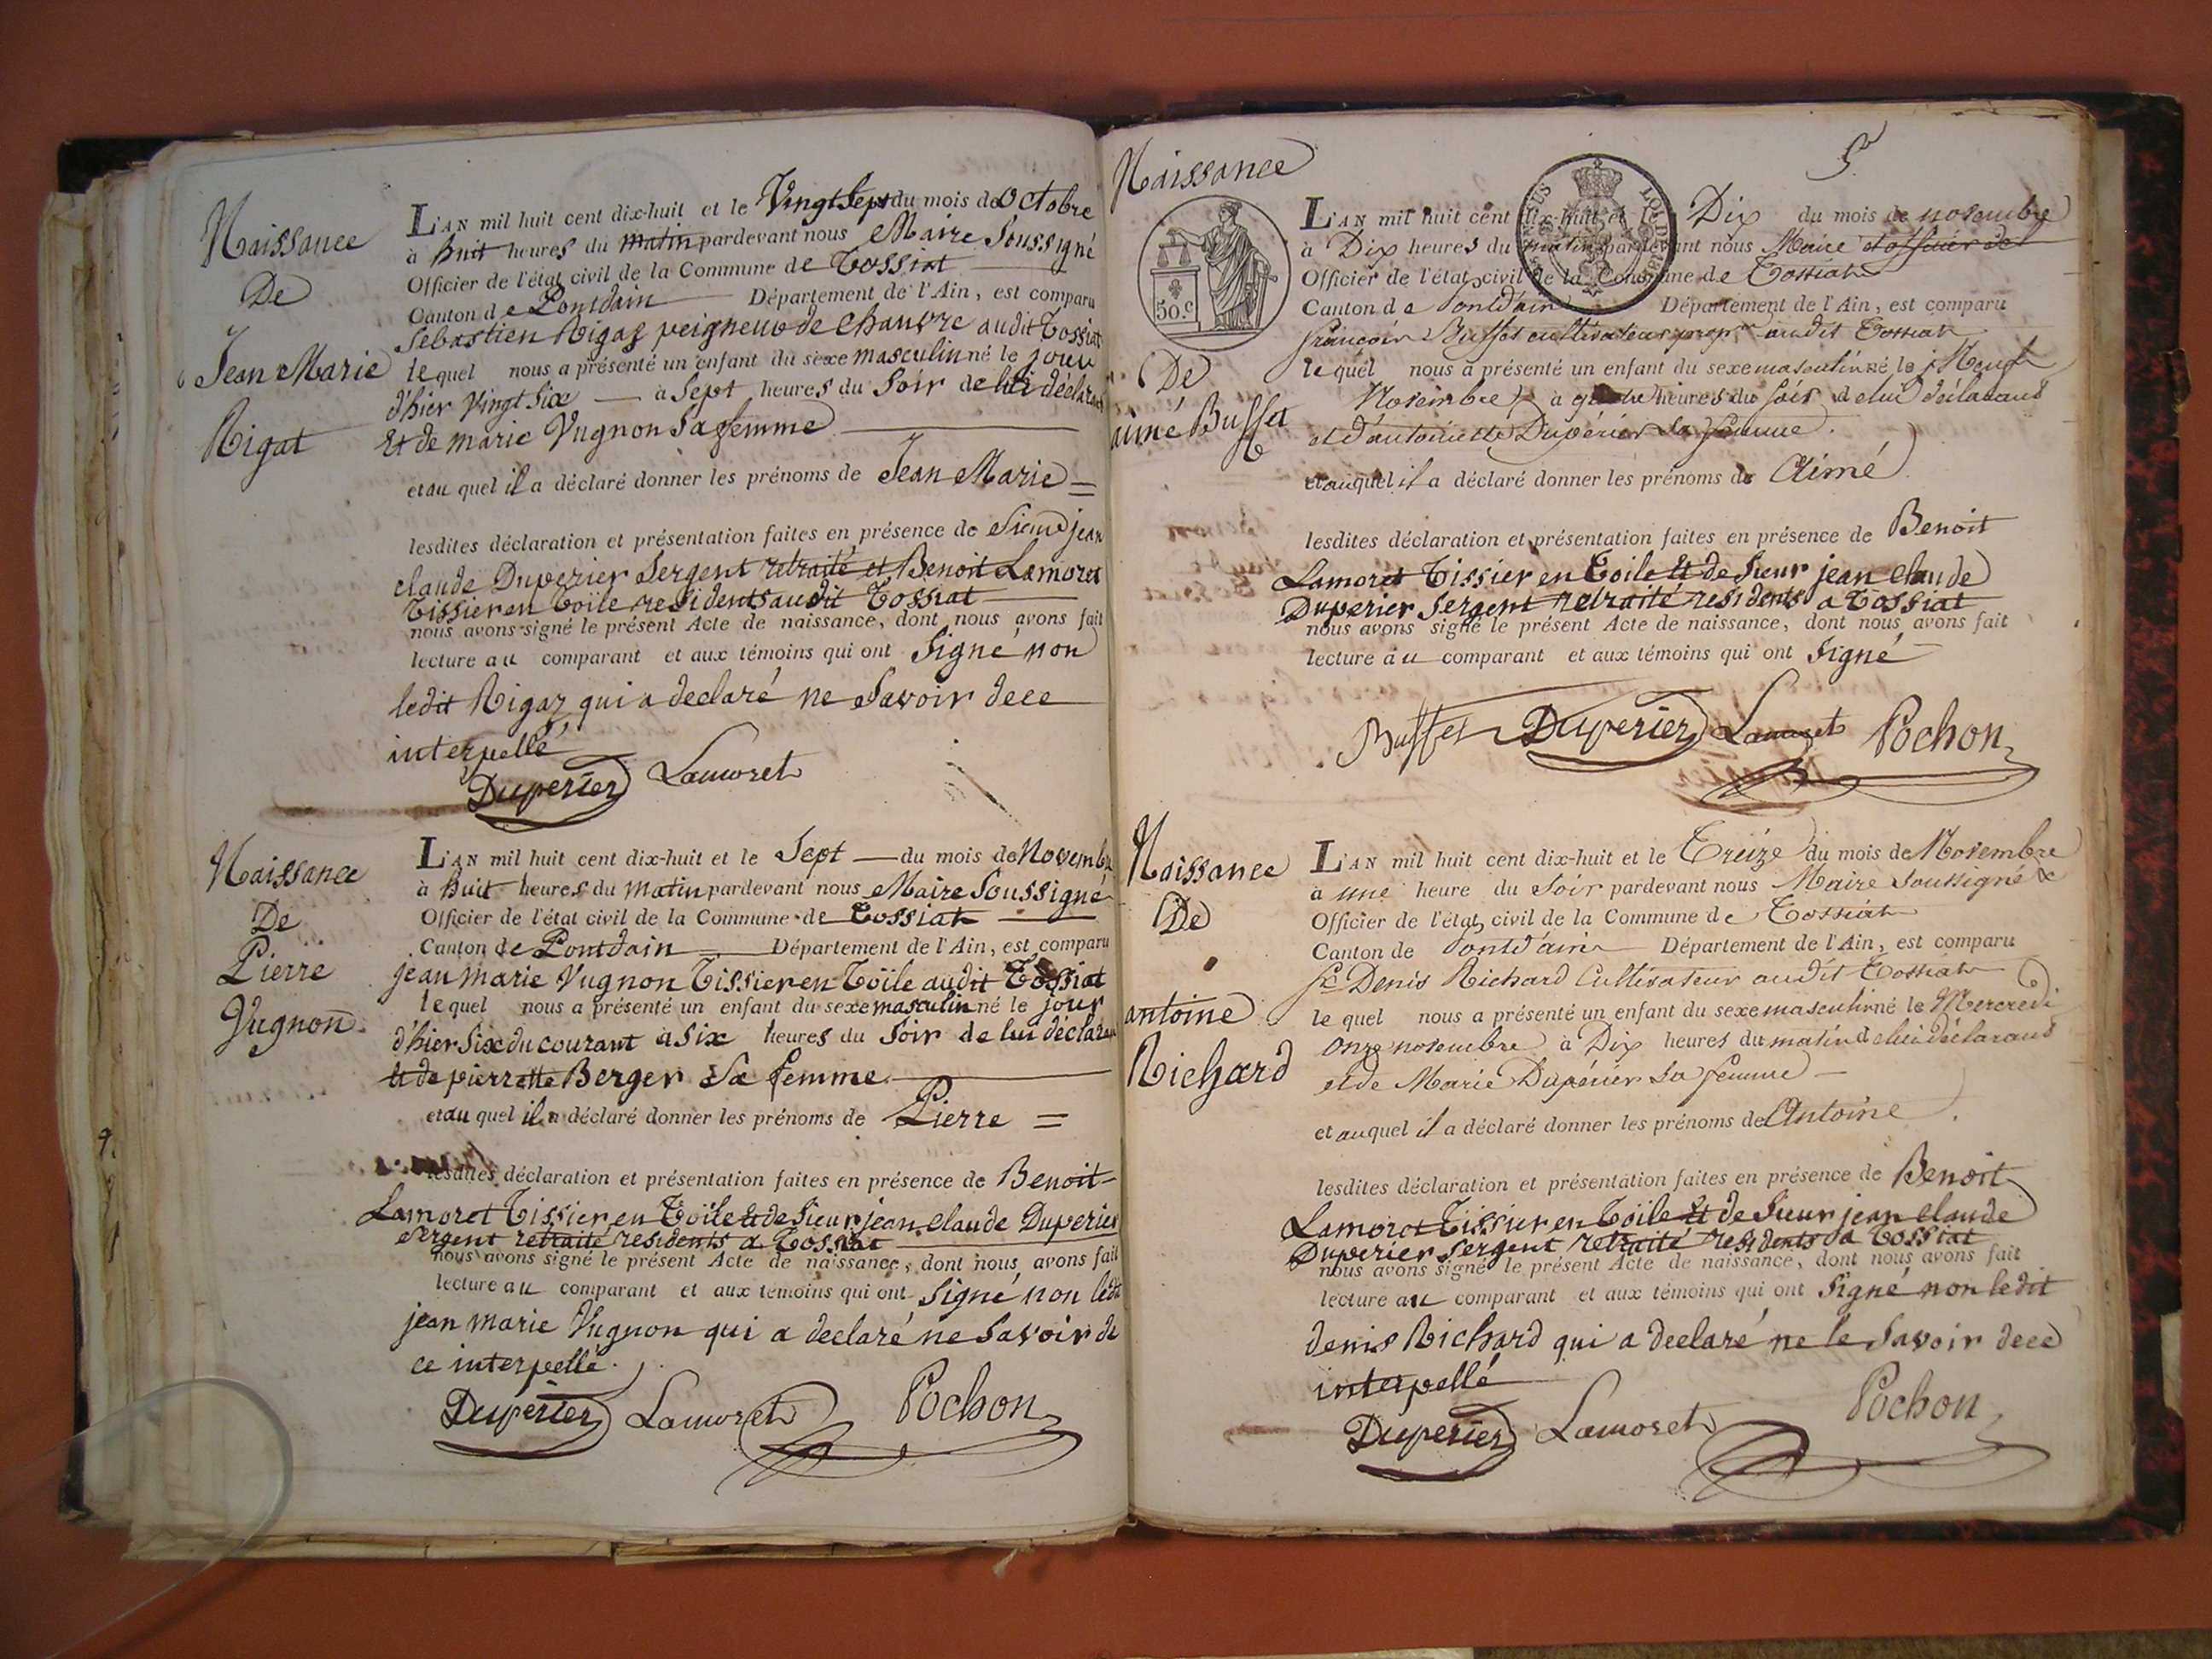 Naissance
De
Jean Marie
Rigat
L'AN mil huit cent dix-huit et le Vingt Sept du mois de Octobre
à huit heures du matin pardevant nous Maire Soussigné
Officier de l'état civil de la Commune de Tossiat
Canton de Pontdain Département de l'Ain, est comparu
Sebastien Rigaz peigneur de Chanvre audit Tossiat
lequel nous a présenté un enfant du sexe masculin né le jour
d'hier Vingt Six à Sept heures du Soir de lui déclarant
Et de marie Vugnon Sa femme
et au quel il a déclaré donner les prénoms de Jean Marie =
lesdites déclaration et présentation faites en présence de Sieur jean
claude Duperier Sergent retraité et Benoit Lamoret
Tissier en Toile residents audit Tossiat
nous avons signé le présent Acte de naissance, dont nous avons fait
lecture au comparant et aux témoins qui ont Signé non
ledit Rigaz qui a declaré ne Savoir dece
interpellé
Duperier Lamoret
Naissance
De
Pierre
Vugnon
L'AN mil huit cent dix-huit et le Sept du mois de Novembre
à huit heures du matin pardevant nous Maire Soussigné
Officier de l'état civil de la Commune de Tossiat
Canton de Pontdain Département de l'Ain, est comparu
jean marie Vugnon Tissier en Toile audit Tossiat
lequel nous a présenté un enfant du sexe masculin né le jour
d'hier Six du courant à Six heures du Soir de lui déclarant
Et de pierrette Berger Sa femme
et au quel il a déclaré donner les prénoms de Pierre =
lesdites déclaration et présentation faites en présence de Benoit
Lamoret Tissier en Toile et de Sieur jean claude Duperier
Sergent retraité residents a Tossiat
nous avons signé le présent Acte de naissance, dont nous avons fait
lecture au comparant et aux témoins qui ont Signé non ledit
jean marie Vugnon qui a declaré ne Savoir de
ce interpellé.
Duperier Lamoret Pochon
Naissance
50 c
De
aimé Buffet
L'AN mil huit cent dix-huit et le Dix du mois de novembre
à Dix heures du matin pardevant nous Maire et officier de l
Officier de l'état civil de la Commune de Tossiat
Canton de Pontd'ain Département de l'Ain, est comparu
françois Buffet cultivateur propre audit Tossiat
le quel nous a présenté un enfant du sexe masculin né le Neuf
Novembre à heures du soir de lui déclarant
et d'antoinette Dupérier sa femme.
et auquel il a déclaré donner les prénoms de Aimé
lesdites déclaration et présentation faites en présence de Benoit
Lamoret Tissier en Toile et de Sieur jean claude
Duperier Sergent retraité residents a Tossiat
nous avons signé le présent Acte de naissance, dont nous avons fait
lecture au comparant et aux témoins qui ont Signé
Buffet Duperier Lamoret Pochon
Naissance
De
antoine
Richard
L'AN mil huit cent dix-huit et le Treize du mois de Novembre
à une heure du Soir pardevant nous Maire soussigné &
Officier de l'état civil de la Commune de Tossiat
Canton de Pontd'ain Département de l'Ain, est comparu
Sr Denis Richard Cultivateur audit Tossiat
le quel nous a présenté un enfant du sexe masculin né le Mercredi
Onze novembre à Dix heures du matin de lui déclarant
et de Marie Dupérier sa femme
et auquel il a déclaré donner les prénoms de Antoine
lesdites déclaration et présentation faites en présence de Benoit
Lamoret Tissier en Toile et de Sieur jean claude
Duperier Sergent retraité residents a Tossiat
nous avons signé le présent Acte de naissance, dont nous avons fait
lecture au comparant et aux témoins qui ont Signé non ledit
denis Richard qui a declaré ne le Savoir dece
interpellé
Duperier Lamoret Pochon